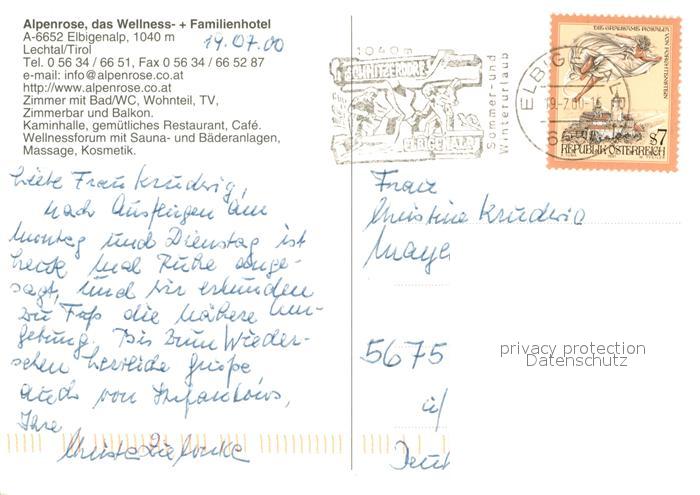 Alpenrose, das Wellness- + Familienhotel
A-6652 Elbigenalp, 1040 m
Lechtal/Tirol
Tel. 0 56 34 / 66 51, Fax 0 56 34 / 66 52 87
e-mail: info@alpenrose.co.at
http://www.alpenrose.co.at
Zimmer mit Bad/WC, Wohnteil, TV,
Zimmerbar und Balkon.
Kaminhalle, gemütliches Restaurant, Café.
Wellnessforum mit Sauna- und Bäderanlagen,
Massage, Kosmetik.
19.07.00
Liebe Frau Krudwig,
nach Ausflügen am
Montag und Dienstag ist
heute mal Ruhe ange-
sagt, und wir erkunden
zu Fuß die nähere Um-
gebung. Bis zum Wieder-
sehen herzliche Grüße
auch von
Ihre
1040m
SCHNITZERDORF
ELBIGENALP
Sommer- und
Winterurlaub
ELBIGENALP
19.-7.00-1
66
DIE GRAUSAME ROSALIA
VON FORCHTENSTEIN
S7
REPUBLIK ÖSTERREICH
Frau
Christine Krudwig
Maye
5675
privacy protection
Datenschutz